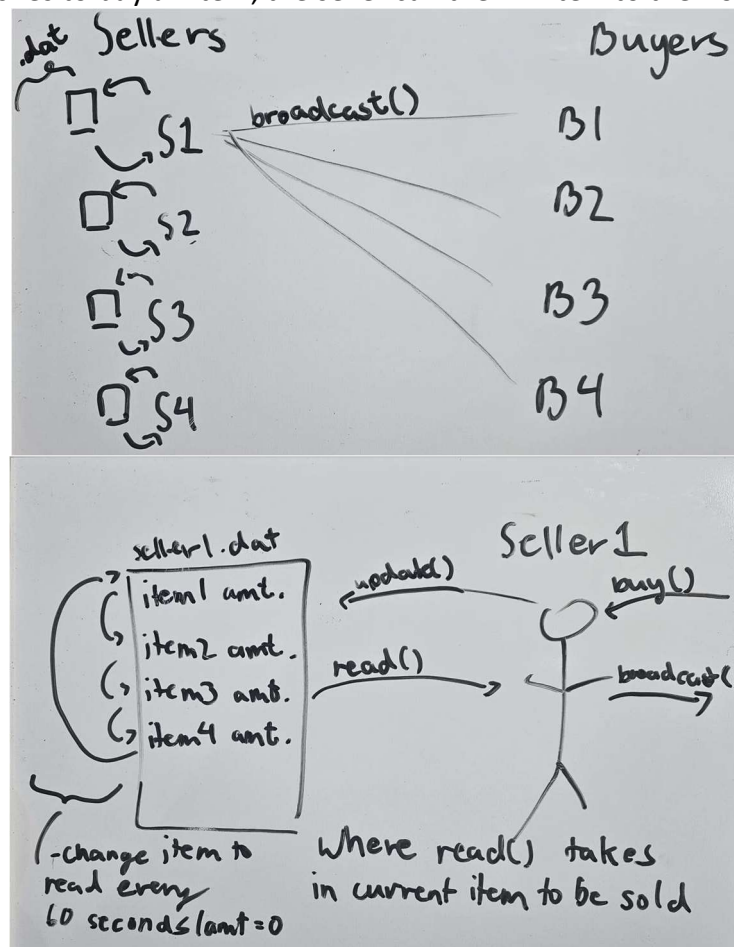 .dat Sellers
Buyers
broadcast()
S1
B1
S2
B2
S3
B3
S4
B4
seller1.dat
Seller1
item1 amt.
item2 amt.
item3 amt.
item4 amt.
update()
buy()
read()
broadcast(
-change item to
read every
60 seconds/amt=0
where read() takes
in current item to be sold